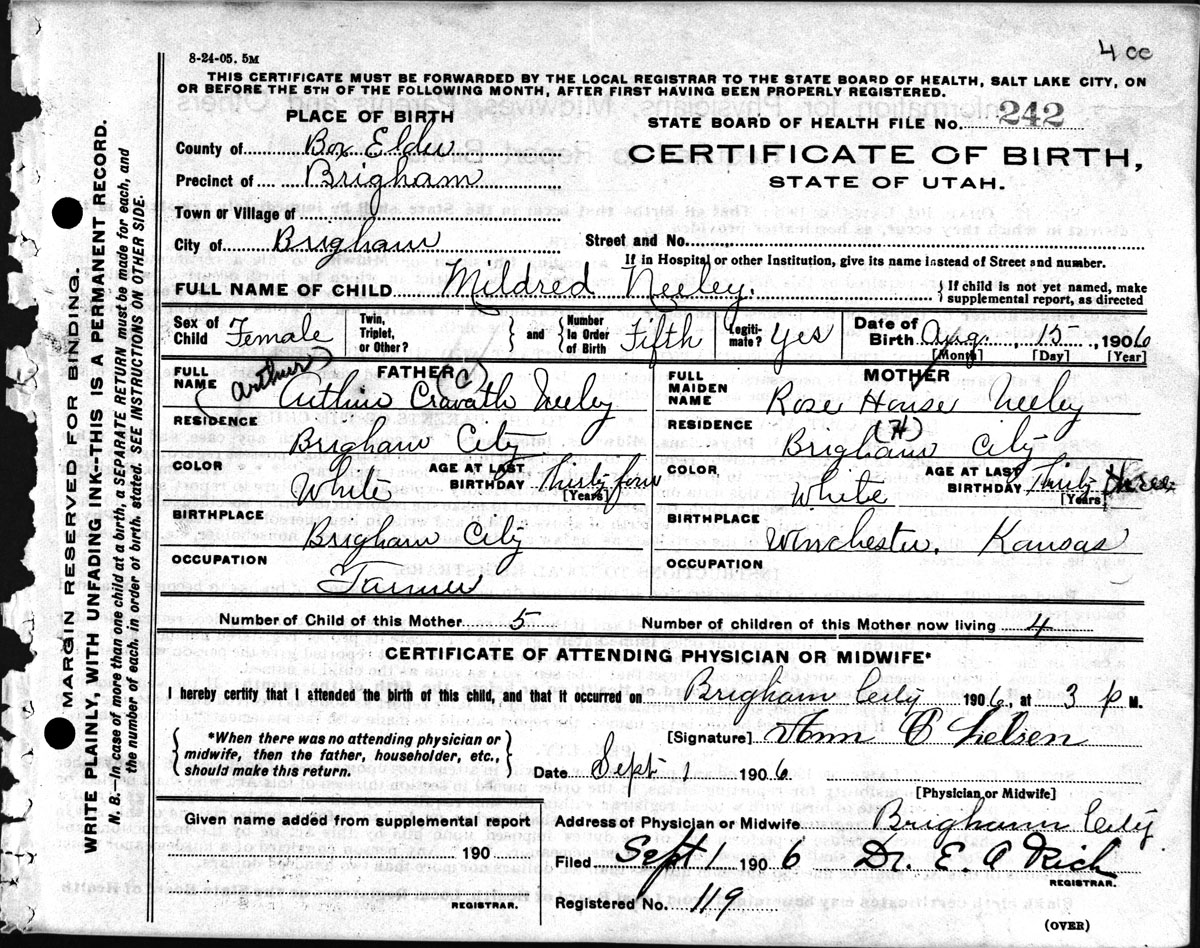 4 cc
8-24-05. 5M
THIS CERTIFICATE MUST BE FORWARDED BY THE LOCAL REGISTRAR TO THE STATE BOARD OF HEALTH, SALT LAKE CITY, ON
OR BEFORE THE 5TH OF THE FOLLOWING MONTH, AFTER FIRST HAVING BEEN PROPERLY REGISTERED.
PLACE OF BIRTH
STATE BOARD OF HEALTH FILE No. 242
County of Box Elder
CERTIFICATE OF BIRTH,
Precinct of Brigham
STATE OF UTAH.
Town or Village of
City of Brigham
Street and No.
If in Hospital or other Institution, give its name instead of Street and number.
FULL NAME OF CHILD Mildred Neeley.
If child is not yet named, make
supplemental report, as directed
Sex of Child Female
Twin, Triplet, or Other?
and
Number in Order of Birth Fifth
Legitimate? Yes
Date of Birth Aug. 15, 1906
[Month] [Day] [Year]
FATHER
FULL NAME (Arthur) Arthur Cravath Neeley
RESIDENCE
Brigham City
COLOR White
AGE AT LAST BIRTHDAY Thirty four
[Years]
BIRTHPLACE
Brigham City
OCCUPATION
Farmer
MOTHER
FULL MAIDEN NAME Rose House Neeley
(H)
RESIDENCE
Brigham City
COLOR White
AGE AT LAST BIRTHDAY Thirty three
[Years]
BIRTHPLACE
Winchester, Kansas
OCCUPATION
Number of Child of this Mother 5
Number of children of this Mother now living 4
CERTIFICATE OF ATTENDING PHYSICIAN OR MIDWIFE*
I hereby certify that I attended the birth of this child, and that it occurred on Brigham City 1906, at 3 P M.
*When there was no attending physician or
midwife, then the father, householder, etc.,
should make this return.
[Signature] Ann C Nelsen
Date Sept 1 1906
[Physician or Midwife]
Given name added from supplemental report
190
REGISTRAR.
Address of Physician or Midwife Brigham City
Filed Sept 1 1906 Dr. E A Rich
REGISTRAR.
Registered No. 119
(OVER)
MARGIN RESERVED FOR BINDING.
WRITE PLAINLY, WITH UNFADING INK--THIS IS A PERMANENT RECORD.
N. B.—In case of more than one child at a birth, a SEPARATE RETURN must be made for each, and
the number of each, in order of birth, stated. SEE INSTRUCTIONS ON OTHER SIDE.